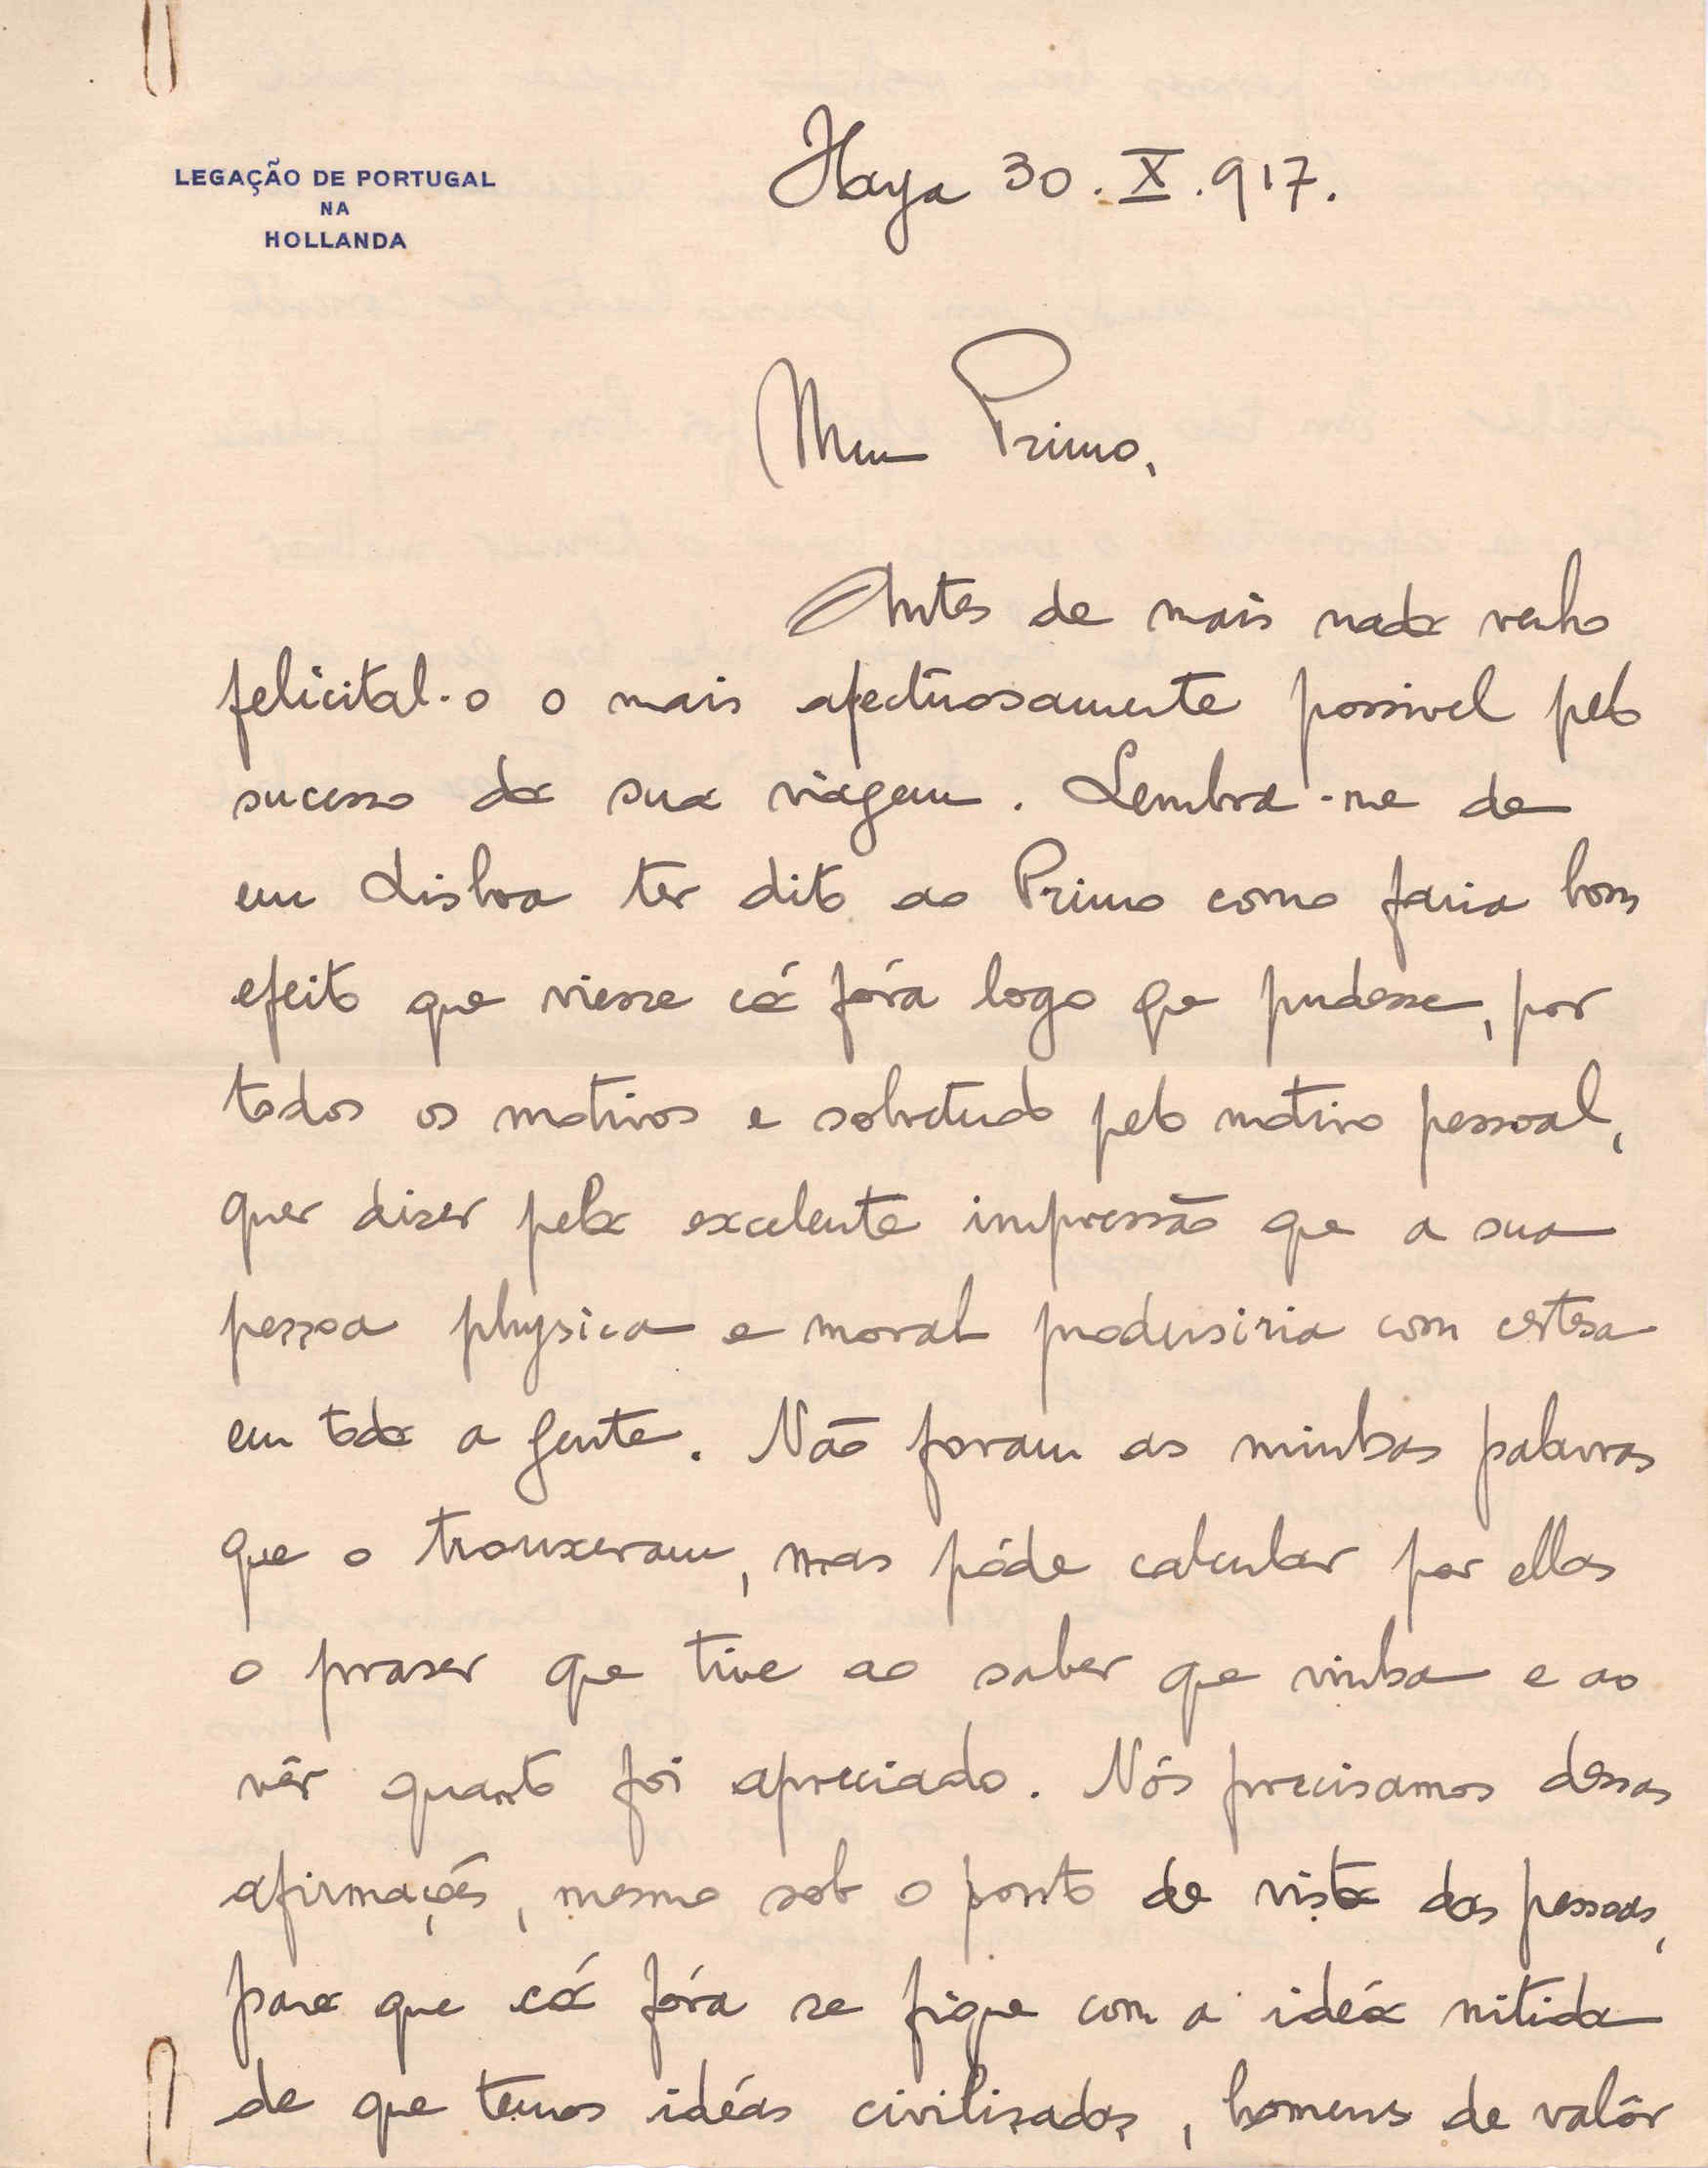 LEGAÇÃO DE PORTUGAL
NA
HOLLANDA
Haya 30.X.917.
Meu Primo,
Antes de mais nada venho
felicital-o o mais afectuosamente possivel pelo
sucesso da sua viagem. Lembra-me de
em Lisboa ter dito ao Primo como faria bom
efeito que viesse cá fóra logo que pudesse, por
todos os motivos e sobretudo pelo motivo pessoal,
quer diser pela excelente impressão que a sua
pessoa physica e moral produsiria com certesa
em toda a gente. Não foram as minhas palavras
que o trouxeram, mas póde calcular por ellas
o praser que tive ao saber que vinha e ao
vêr quanto foi apreciado. Nós precisamos dessas
afirmações, mesmo sob o ponto de vista das pessoas,
para que cá fóra se fique com a ideá nitida
de que temos idéas civilisadas, homens de valôr